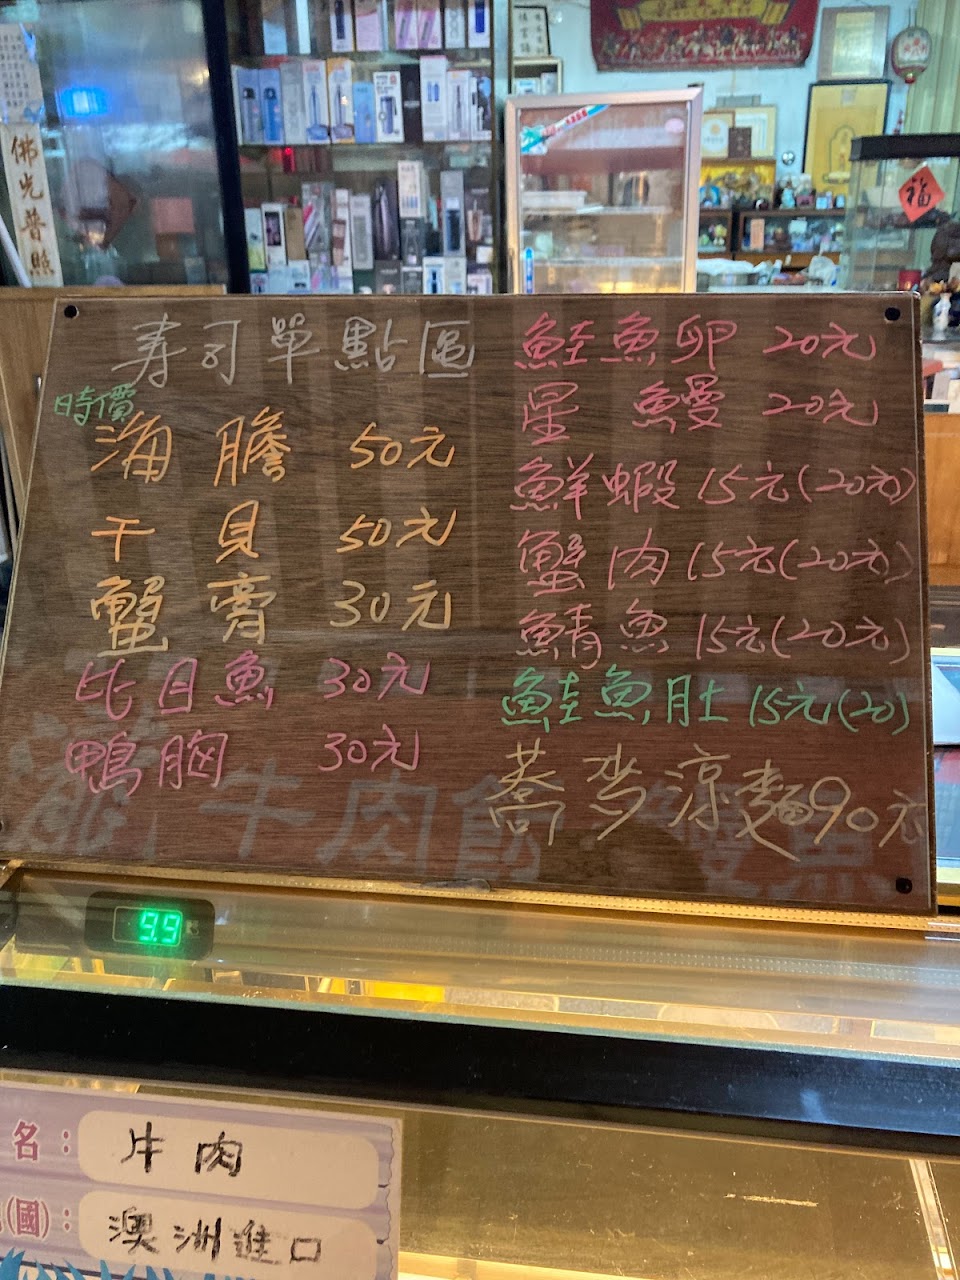 佛光普照
福
寿司單點區
時價
海膽 50元
干貝 50元
蟹膏 30元
比目魚 30元
鴨胸 30元
鮭魚卵 20元
星鰻 20元
鮮蝦 15元(20元)
蟹肉 15元(20元)
鯖魚 15元(20元)
鮭魚肚 15元(20)
蕎麥涼麵90元
牛肉
9.9
名：牛肉
(國)：澳洲進口